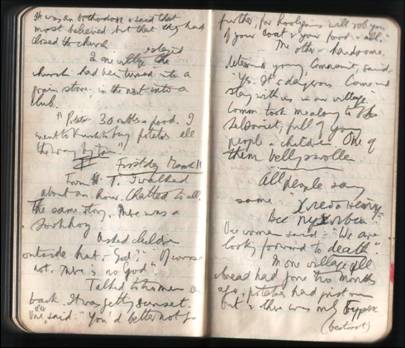 it was an Orthodox & said that
most believed but that they had
closed the church.
In one village the
church had been turned into a
grain store, in the next into a
club.
"Potato 30 roubles a pood. I
went to Kharkov to buy potatoes all
the way by train"
First day March 11
From H. T. I walked
about an hour. Chatted to all.
The same story. There was a
Sovkhoz
Asked children
outside hut. "God?" "Of course
not. There is no god."
Talked to the men
back. It was getting sunset.
One said: "You'd better not go
further, for hooligans will rob you
of your coat & your food & all."
The other, a handsome,
determined young Communist, said:
"Yes. It's dangerous. Come and
stay with us in our village."
Comm. took me along to the
Selsoviet, full of young
people & children. One of
them belly swollen
All people say
same
One woman said: "We are
looking forward to death."
In one village all
bread had gone two months
ago, potatoes had just run
out & there was only бурак
(beetroot)